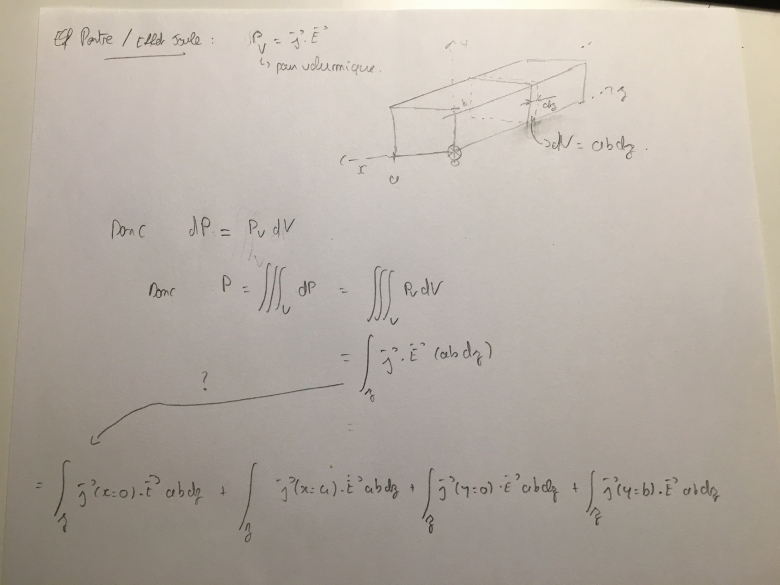 Effet Joule : P_v = j⃗.E⃗
↳ puiss volumique.
y
b
dz
z
dV = abdz.
x
a
Donc dP = P_v dV
Donc P = ∭_V dP = ∭_V P_v dV
= ∫_z j⃗.E⃗ (abdz)
?
=
= ∫_z j⃗(x=0).E⃗ abdz + ∫_z j⃗(x=a).E⃗ abdz + ∫_z j⃗(y=0).E⃗ abdz + ∫_z j⃗(y=b).E⃗ abdz